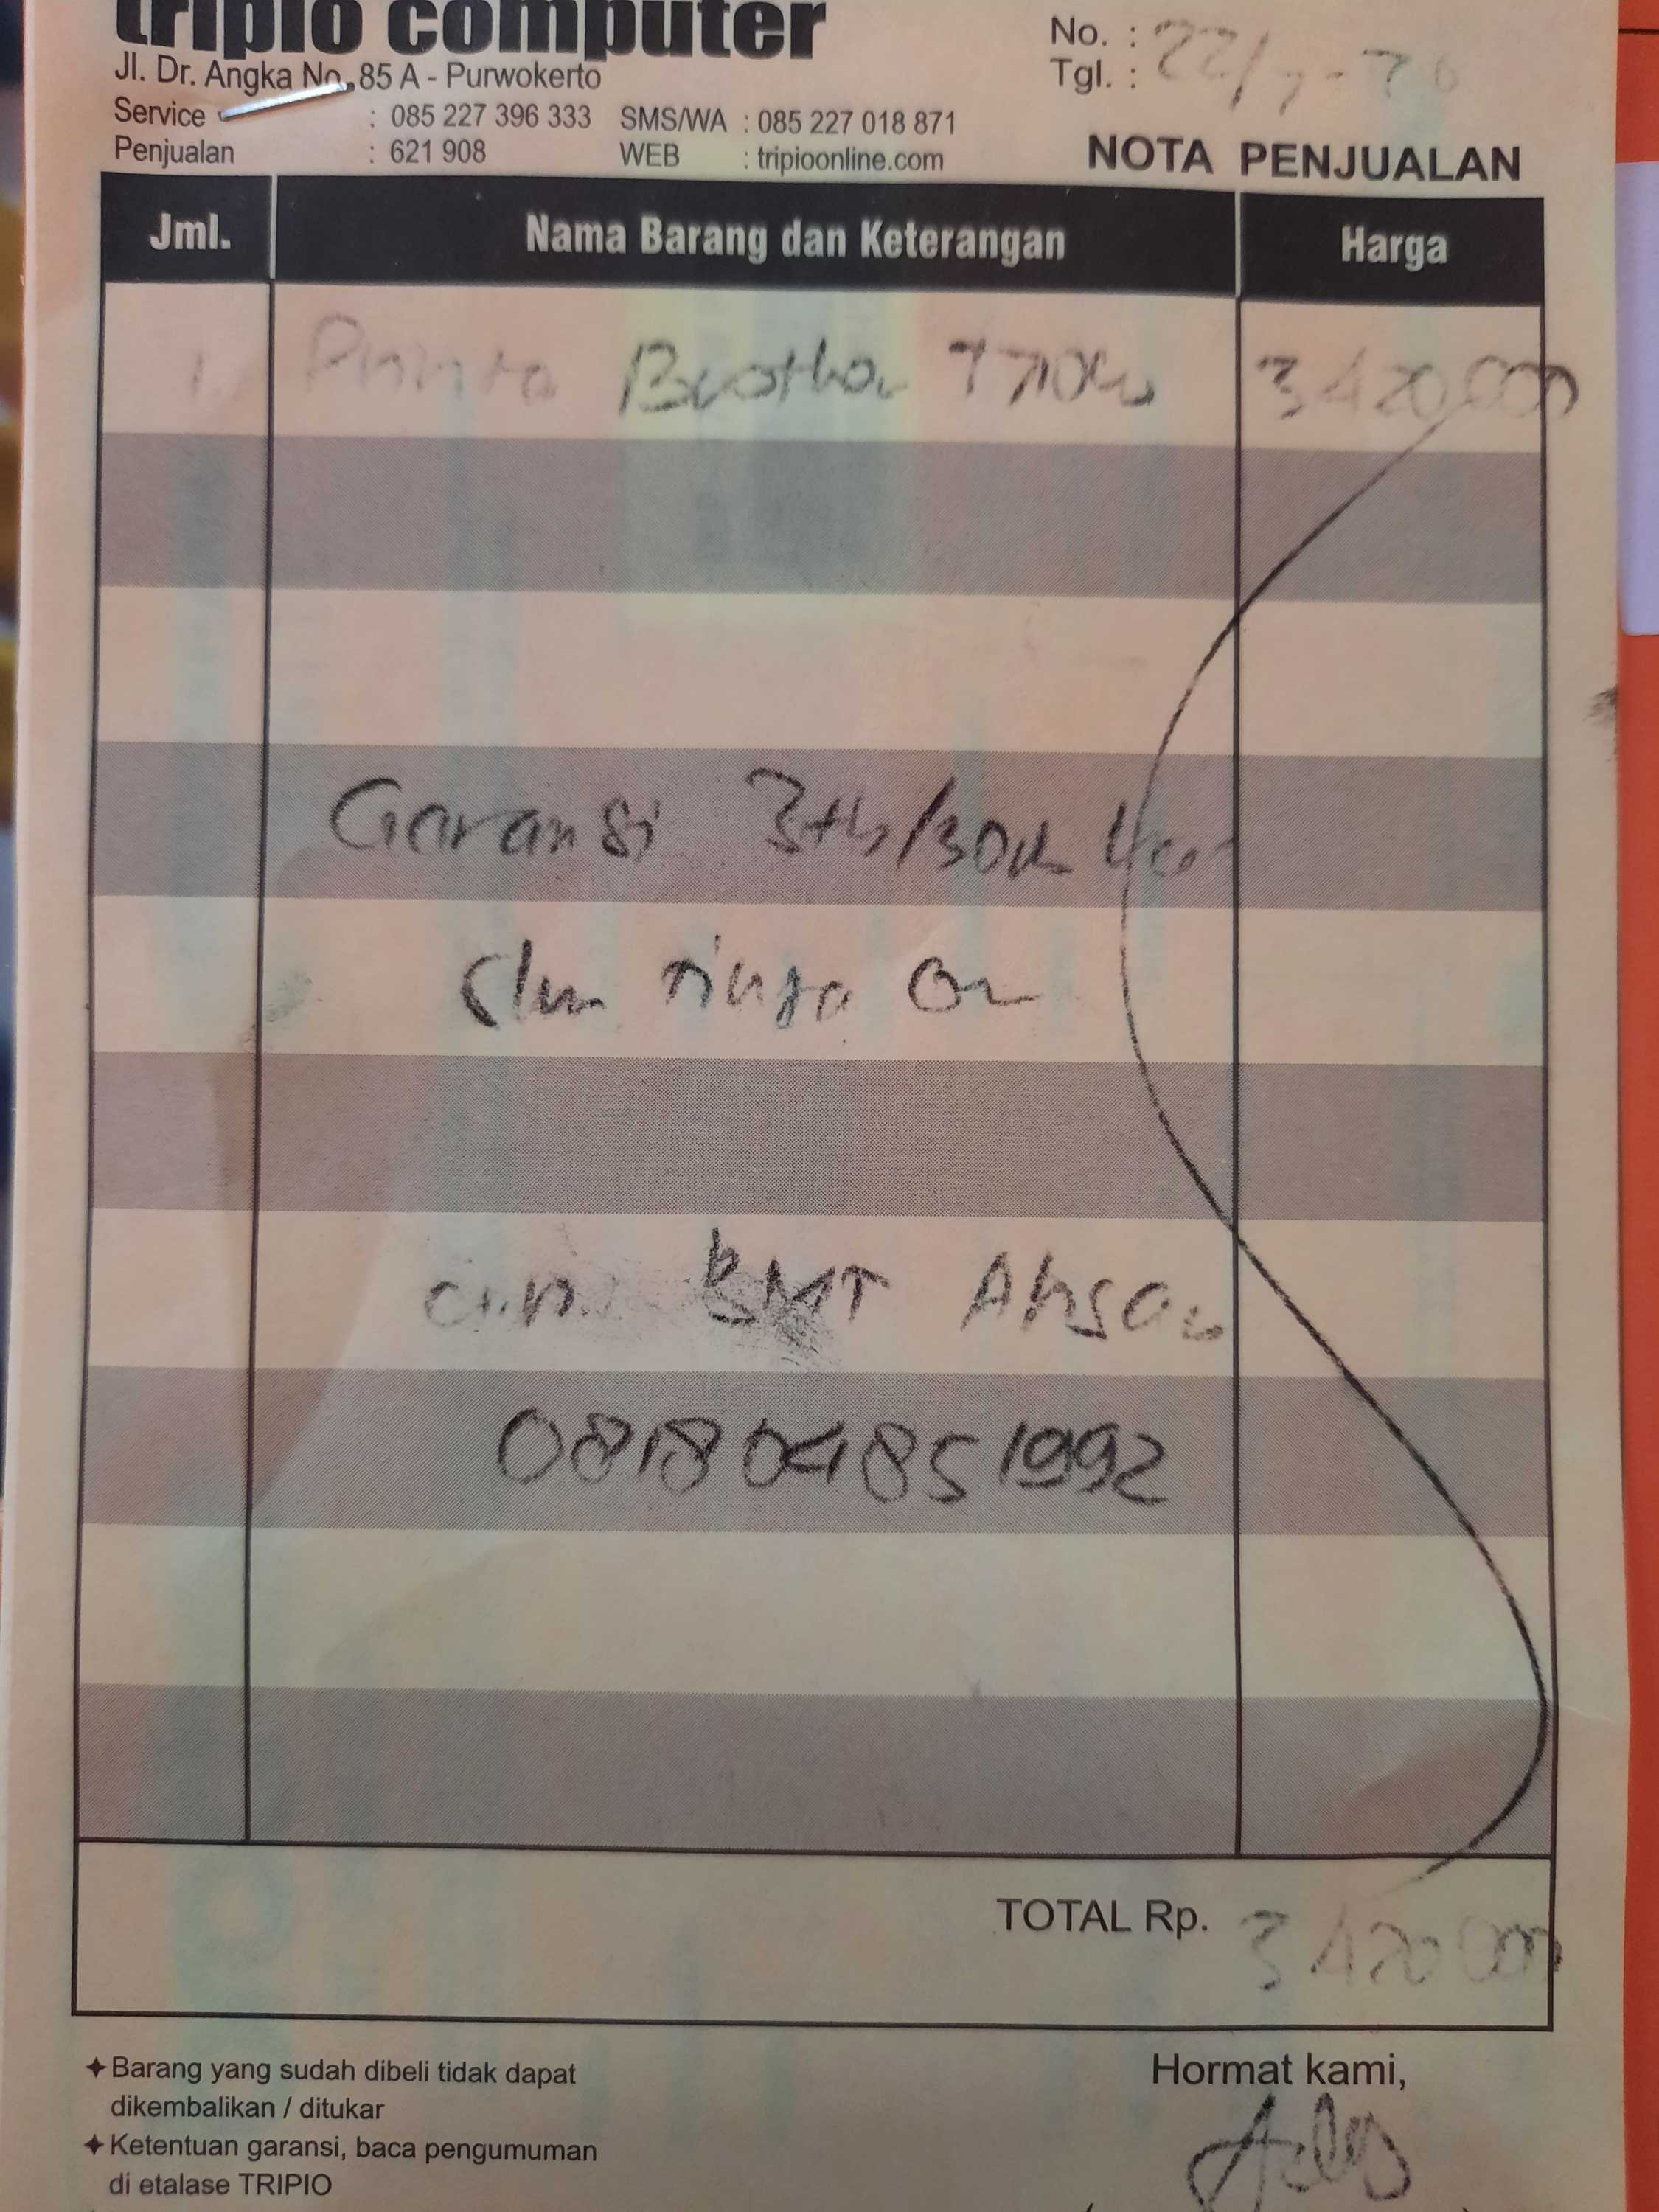 tripio computer
Jl. Dr. Angka No. 85 A - Purwokerto
Service : 085 227 396 333 SMS/WA : 085 227 018 871
Penjualan : 621 908 WEB : tripioonline.com
No. :
Tgl. : 22/7-20
NOTA PENJUALAN
Jml. Nama Barang dan Keterangan Harga
1. Printer Brother T710W 3420000
Garansi 3th/30rb
a.n. BMT Ahsan
081804851992
TOTAL Rp. 3420000
✦ Barang yang sudah dibeli tidak dapat
dikembalikan / ditukar
✦ Ketentuan garansi, baca pengumuman
di etalase TRIPIO
Hormat kami,